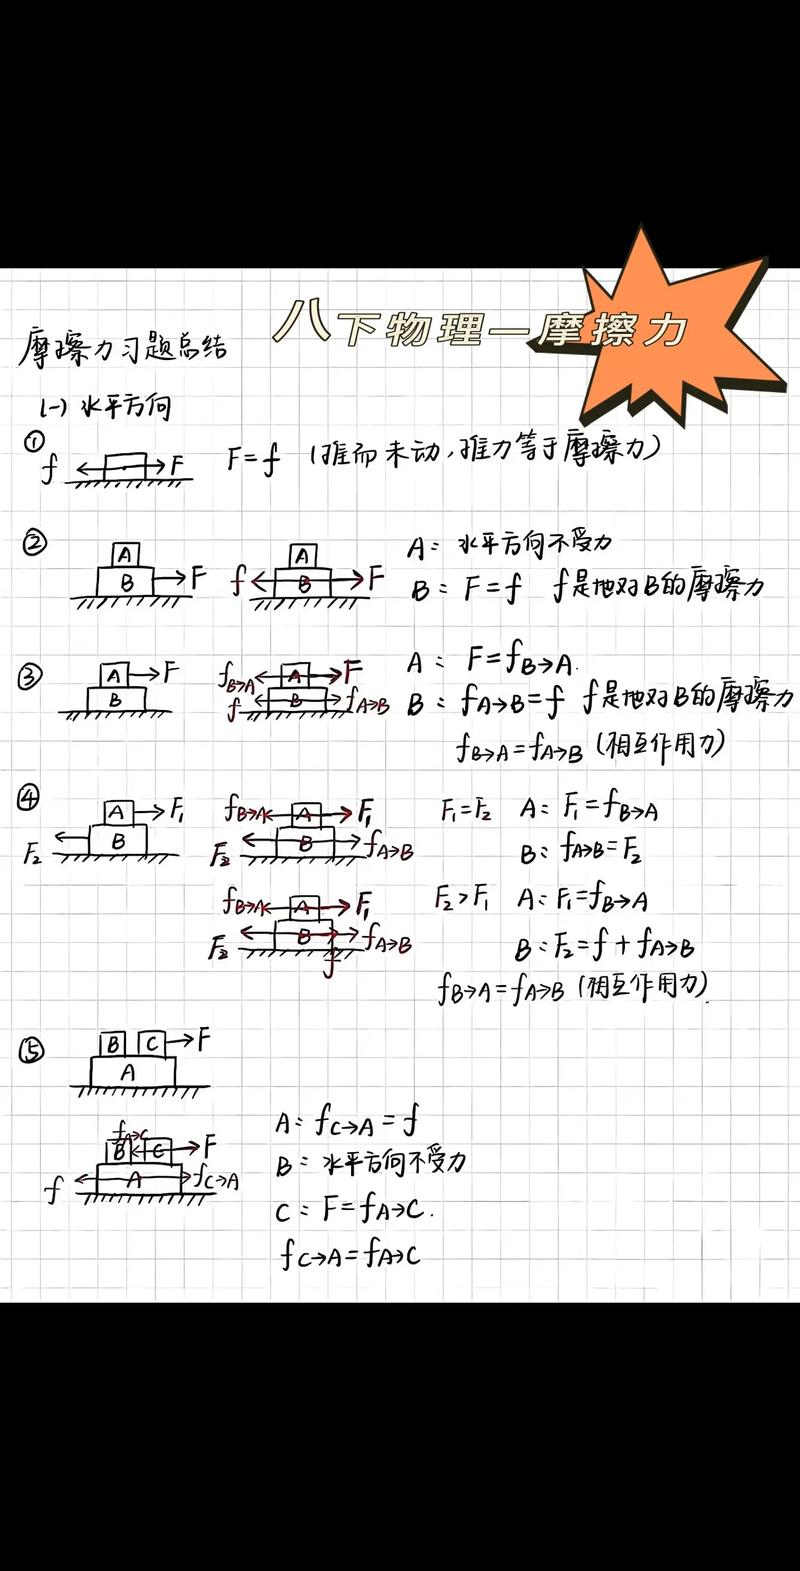 八下物理—摩擦力
摩擦力习题总结
(一) 水平方向
①
f F F=f (推而未动,推力等于摩擦力)
②
A B F f A B F
A: 水平方向不受力
B: F=f f是地对B的摩擦力
③
A F B
fB→A A F f B fA→B
A: F=fB→A.
B: fA→B=f f是地对B的摩擦力
fB→A=fA→B (相互作用力)
④
A F₁ F₂ B
fB→A A F₁ F₂ B fA→B
F₁=F₂ A: F₁=fB→A
B: fA→B=F₂
fB→A A F₁ F₂ B fA→B f
F₂>F₁ A: F₁=fB→A
B: F₂=f+fA→B
fB→A=fA→B (相互作用力).
⑤
B C F
A
fA→C
B C F
f A fC→A
A: fC→A=f
B: 水平方向不受力
C: F=fA→C.
fC→A=fA→C